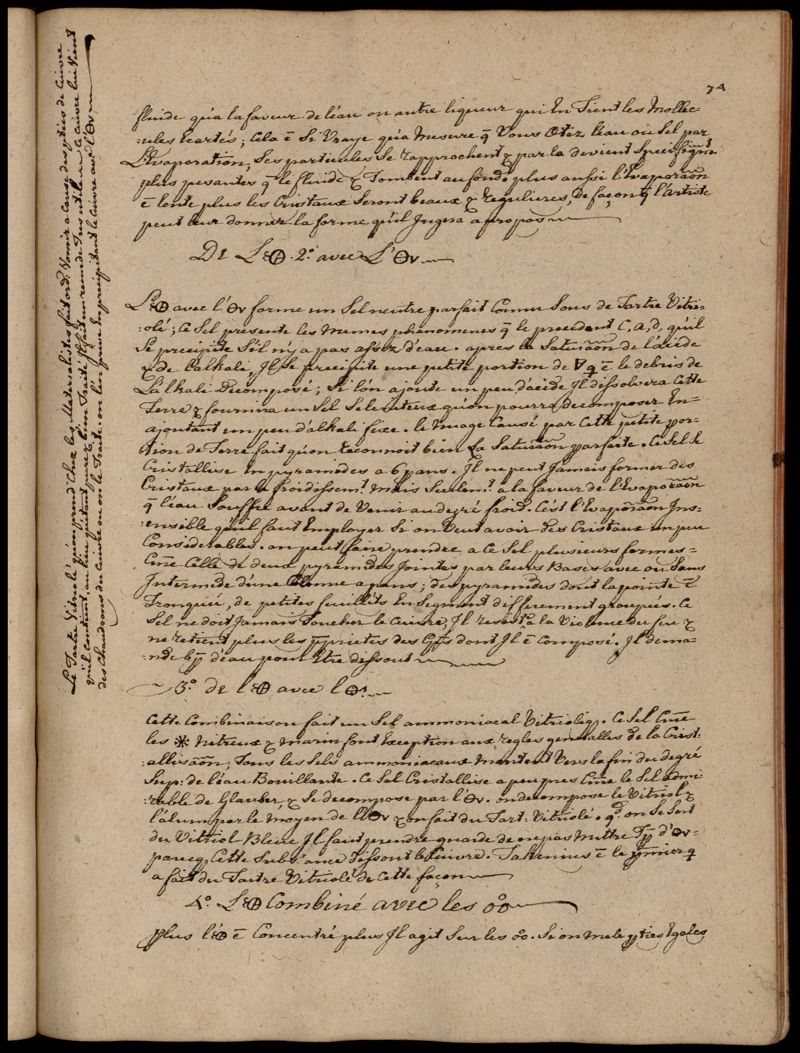 74
fluide qu'a la faveur de l'eau ou autre liqueur qui En Tient les Mollec-
-ules Ecartés; Cela ē Si Vraye qu'a Mesure q̄ Vous Otéz l'eau où Sel par
L'évaporation, Ses particules Se rapprochent & par la devient Specifiqmt
plus pesantes q̄ le fluide & Tombent au fond & plus aussi l'Evaporaōn
ē lente plus les Cristaux Seront beaux & reguliers, de façon q̄ l'artiste
peut leur donner la forme qu'il Jugera apropos
De L'🜔. 2.° avec L'🜔v
L'🜔 avec l'🜔v forme un Sel neutre parfait Connu Sous de Tartre Vitri-
-olé; Ce Sel presente les Memes phénomenes q̄ le precedent C, a, d, qu'il
Se precipite S'il n'y a pas assez d'eau. après la Saturaōn de l'acide
& de l'alkali, Il Se precipite une petite portion de 🜃 q ē le debris de
L'alkali Decomposé; Si l'on ajoute un peu d'acide Il dissolvera Cette
Terre & fournira un Sel Seleniteux qu'on pourra decomposer En
ajoutant un peu d'alkali fixe. le Nuage Causé par Cette petite por-
tion de Terre fait qu'on reconnoit bien La Saturaōn parfaite. Ce Sel Se
Cristallise En pyramides a 6 pans. Il ne peut Jamais former des
Cristaux par le froidissemt. Mais Seulemt. a la faveur de l'Evaporaōn
q̄ l'eau Souffre avant de Venir au degré froid. C'est l'Evaporaōn Ins-
-ensible qu'il faut Employer Si on Veut avoir des Cristaux un peu
Considerables. on peut faire prendre a Ce Sel plusieurs formes-
Cōme Celle de deux pyramides Jointes par leurs Bases avec ou Sans
Intermede d'une Colonne a pans; des pyramides dont la pointe ē
Tronquée, de petites feuillets En Segment differement groupés. Ce
Sel ne doit Jamais Toucher le Cuivre, Il resiste a la Violence du feu &
ne retient plus les pprietés des Cps dont Il ē Composé. Il dema-
-nde d'eau pour Etre dissout
3.° de l'🜔 avec l'🜔
Cette Combinaison fait un Sel ammoniacal Vitrioliq. Ce Sel Cōme
les ✱ Nitreux & marin font Exception aux regles generalles de la Crist-
-allisaōn, Tous les Sels ammoniacaux Montent Vers la fin du degré
Sup: de l'eau Bouillante. Ce Sel Cristallise a peu pres Cōme le Sel admi-
-rable de Glauber, & Se decompose par l'🜔v. on decompose le Vitriol &
l'alum par le Moyen de l'🜔v & on fait du Tart: Vitriolé. qd on Se Sert
du Vitriol Bleue Il faut prendre guarde de ne pas Mettre Trp d'🜔v
parceq, Cette Substance dissout le Cuivre. Takenius ē le pmier q
a fait du Tartre Vitriolé de Cette façon
4.° L'🜔 Combiné avec les oo
Plus l'🜔 ē Concentré plus Il agit Sur les oo. Si on Mele pties Egales
Le Tartre Vitriolé qu'on prend Chez les Materialistes fait ord: Vomir a cause des pties de Cuivre
qu'il Contient,
des Chaudrons de Cuivre ou on le Traite. on l'en prive En precipitant le Cuivre avec l'🜔v